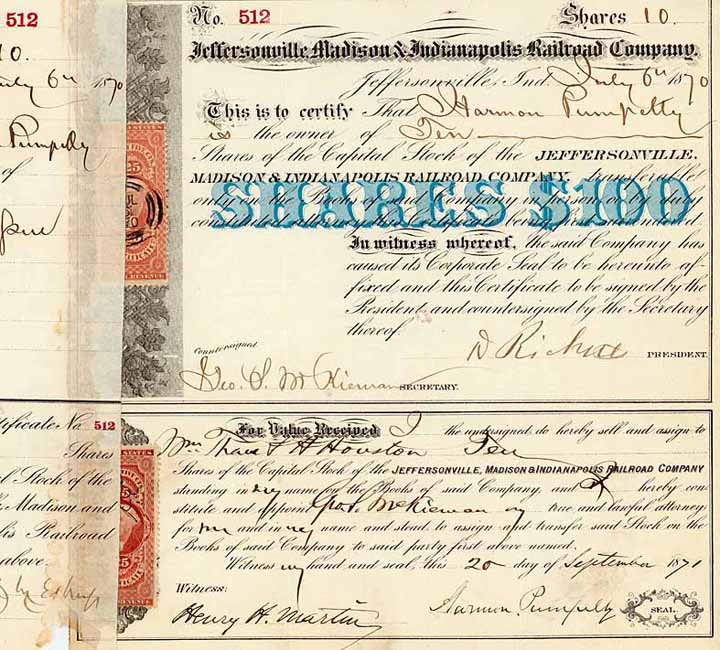 512
No. 512 Shares 10.
Jeffersonville Madison & Indianapolis Railroad Company.
10.
July 6th 1870
Jeffersonville, Ind. July 6th 1870
This is to certify That Harmon Pumpelly
is the owner of Ten
Pumpelly
of
Shares of the Capital Stock of the JEFFERSONVILLE,
MADISON & INDIANAPOLIS RAILROAD COMPANY, transferable
only on the Books of said Company in person or by
SHARES $100
25
In witness whereof, the said Company has
caused its Corporate Seal to be hereunto af-
fixed and this Certificate to be signed by the
President and countersigned by the Secretary
thereof.
Countersigned
PRESIDENT.
Geo. S. McKiernan SECRETARY.
Certificate No 512
For Value Received I the undersigned do hereby sell and assign to
Shares
Houston Ten
Stock of the
Shares of the Capital Stock of the JEFFERSONVILLE, MADISON & INDIANAPOLIS RAILROAD COMPANY
Madison and
standing in my name on the Books of said Company, and I hereby con-
stitute and appoint Geo. S. McKiernan my true and lawful attorney
Railroad
for me and in my name and stead, to assign and transfer said Stock on the
above.
Books of said Company to said party first above named.
Witness my hand and seal, this 20 day of September 1871
Witness:
Henry H. Martin Harmon Pumpelly SEAL.